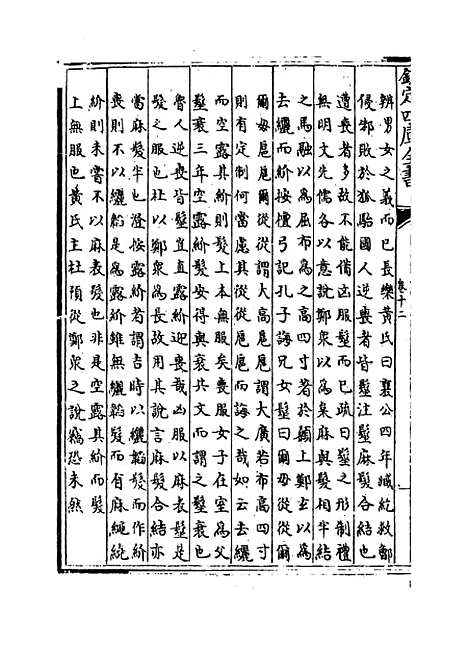 欽定四庫全書
卷十二
辨男女之義而已長樂黃氏曰襄公四年臧紇救鄫
侵邾敗於狐駘國人逆喪者皆髽注髽麻髮合結也
遭喪者多故不能備凶服髽而已疏曰髽之形制禮
無明文先儒各以意說鄭衆以為枲麻與髮相半結
之馬融以為屈布為之高四寸著於顙上鄭玄以為
去纚而紒按檀弓記孔子誨兄女髽曰爾毋從從爾
爾毋扈扈爾從從謂大高扈扈謂大廣若布高四寸
則有定制何當慮其從從扈扈而誨之哉如云去纚
而空露其紒則髮上本無服矣喪服女子在室為父
髽衰三年空露紒髮安得與衰共文而謂之髽衰也
魯人逆喪皆髽豈直露紒迎喪哉凶服以麻表髽是
髮之服也杜以鄭衆為長故用其說言麻髮合結亦
當麻髮半也澄按露紒者謂吉時以纚韜髮而作紒
喪則不以纚韜是為露紒雖無纚韜髮而有麻繩繞
紒則未嘗不以麻表髮也非是空露其紒而髮
上無服也黃氏主杜預從鄭衆之說竊恐未然